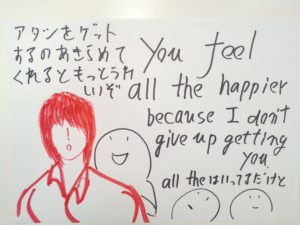 アタシをゲット
するのあきらめて
くれるともっとうれ
しいぞ
You feel
all the happier
because I don't
give up getting
you
all theはいってるだけど